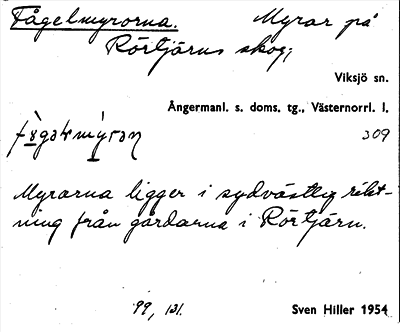 Fågelmyrorna. Myrar på
Rörtjärns skog;
Viksjö sn.
Ångermanl. s. doms. tg., Västernorrl. l.
309
Myrorna ligger i sydvästlig rikt-
ning från gårdarna i Rörtjärn.
99, 131.
Sven Hiller 1954